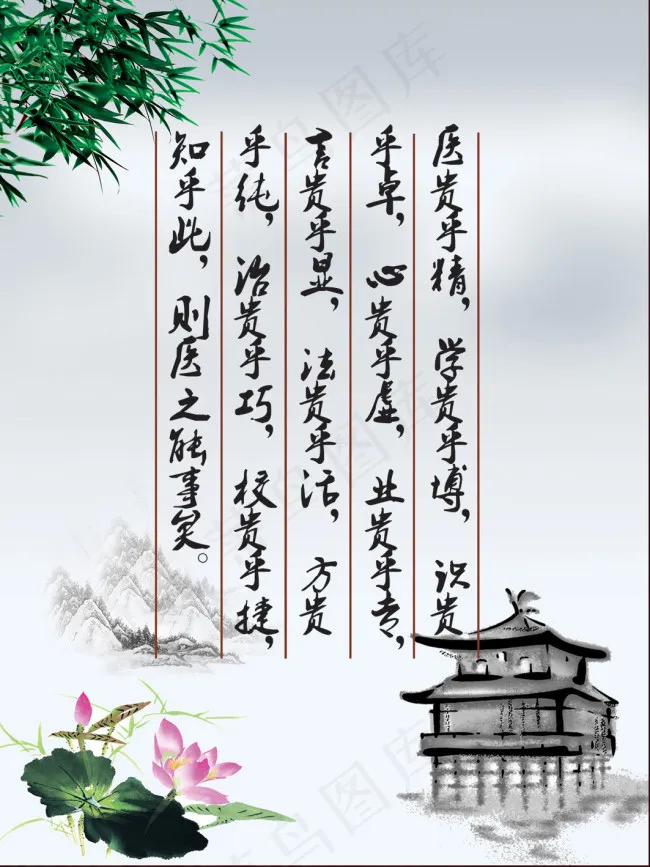 医贵乎精，学贵乎博，识贵
乎卓，心贵乎虚，业贵乎专，
言贵乎显，法贵乎活，方贵
乎纯，治贵乎巧，校贵乎捷，
知乎此，则医之能事矣。
菜鸟图库